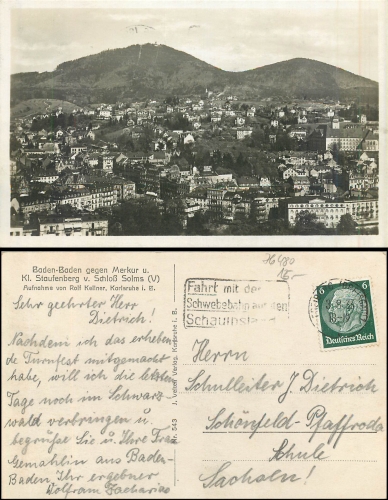 Baden-Baden gegen Merkur u.
Kl. Staufenberg v. Schloß Solms (V)
Aufnahme von Rolf Kellner, Karlsruhe i. B.
Sehr geehrter Herr
Dietrich!
Nachdem ich das erheben
de Turnfest mitgemacht
habe, will ich die letzten
Tage noch im Schwarz
wald verbringen u.
begrüße Sie u. Ihre Frau
Gemahlin aus Baden-
Baden, Ihr ergebner
Wolfram Zacharias
J. Velten Verlag, Karlsruhe i. B.
Nr. 543
15,-
Fahrt mit der
Schwebebahn auf den
Schauinsland
6
6
Deutsches Reich
Herrn
Schulleiter J. Dietrich
Schönfeld-Pfaffroda
Schule
Sachsen!